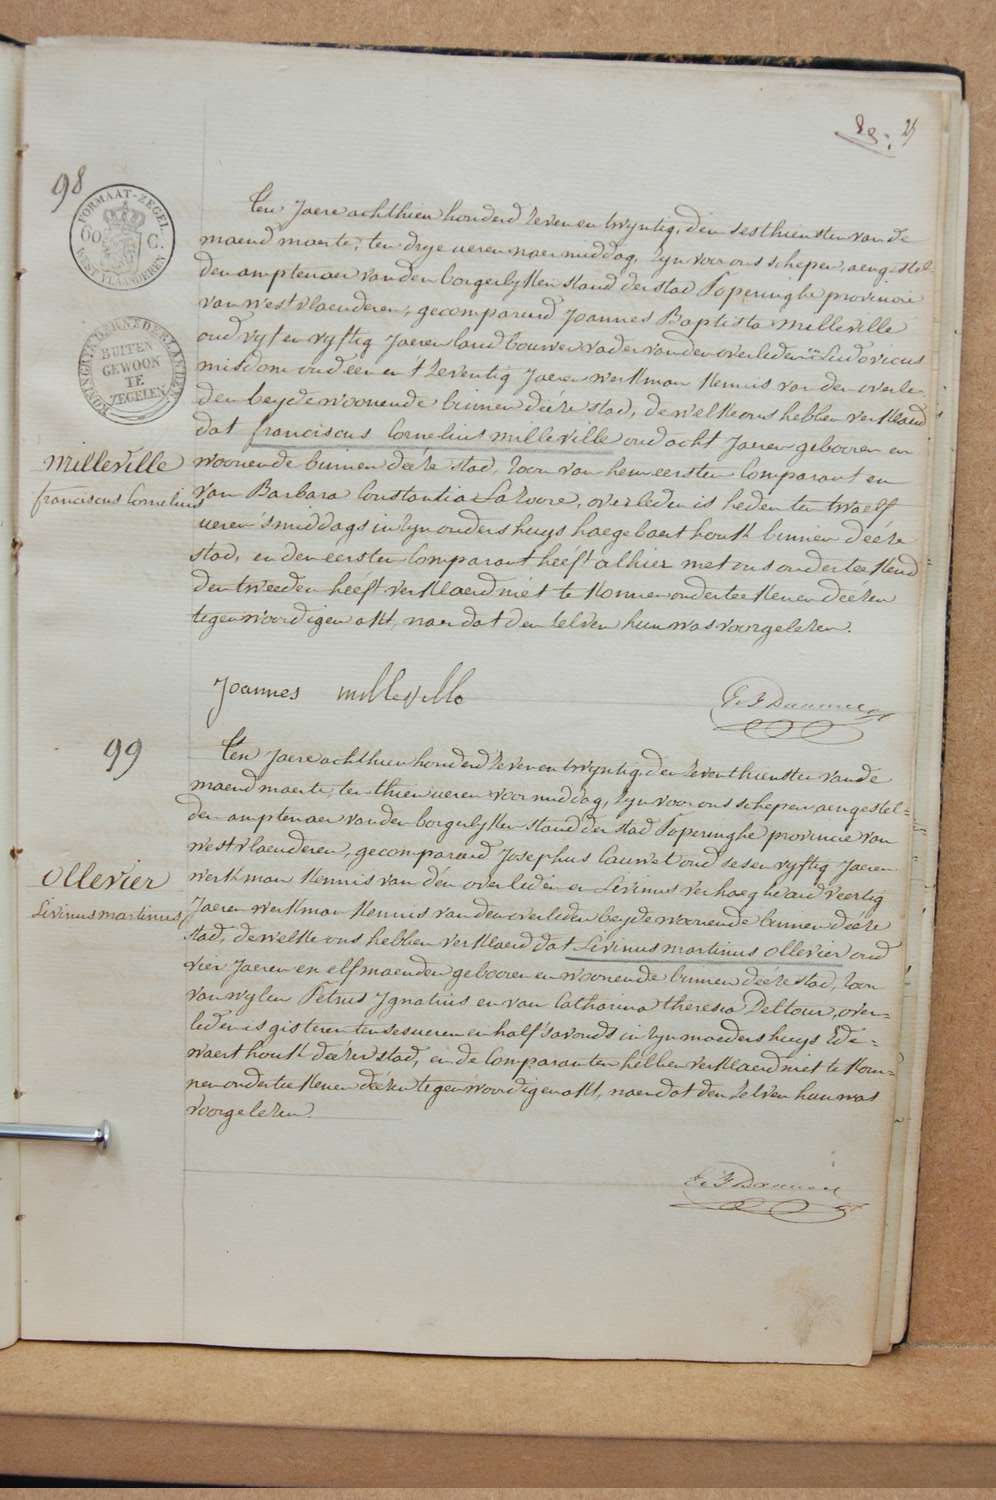 25
98
FORMAAT-ZEGEL.
60 C.
WEST VLAANDEREN
KONINGRYK DER NEDERLANDEN
BUITEN
GEWOON
TE
ZEGELEN
Milleville
franciscus Cornelius
Ten Jaere achthien honderd zeven en twyntig, den sesthiensten van de
maend maerte, ten drye ueren naer middag, zyn voor ons schepen, aengestel-
den amptenaer van den borgerlyken stand der stad Poperinghe provincie
van westvlaenderen, gecomparend Joannes Baptista Milleville
oud vyf en vyftig Jaeren landbouwer vader van den overleden en Ludovicus
misdom oud een en t'zeventig Jaeren werkman kennis van den overle-
den beyde woonende binnen deéze stad, de welke ons hebben verklaerd
dat franciscus Cornelius milleville oud acht Jaeren gebooren en
woonende binnen deéze stad, zoon van hem eersten Comparant en
van Barbara Constantia Lazoore, overleden is heden ten twaelf
ueren 's middags in zyn ouders huys haegebaert houk binnen deéze
stad, en den eersten Comparant heeft alhier met ons onderteekend
den tweeden heéft verklaerd niet te konnen onderteekenen deézen
tegenwoordigen akt, naer dat den zelven hun was voorgelezen.
Joannes milleville
99
Ollevier
Livinus martinus
Ten Jaere achthien honderd zeven en twyntig, den zeventhiensten van de
maend maerte, ten thien ueren voormiddag, zyn voor ons schepen aengestel-
den amptenaer van den borgerlyken stand der stad Poperinghe provincie van
westvlaenderen, gecomparend Josephus Cauwet oud ses en vyftig Jaeren
werkman kennis van dén overléden en Livinus Verhaeghe oud veertig
Jaeren werkman kennis van den overleden beyde woonende binnen deéze
stad, de welke ons hebben verklaerd dat Livinus martinus Ollevier oud
vier Jaeren en elf maenden gebooren en woonende binnen deéze stad, zoon
van wylen Petrus Jgnatius en van Catharina theresia Deltour, over-
leden is gisteren ten ses ueren en half 's avonds in zyn moeders huys Ede-
waert houk deézer stad, en de Comparanten hébben verklaerd niet te kon-
nen onderteekenen deézen tegenwoordigen akt, naer dat den zelven hun was
voorgelezen.